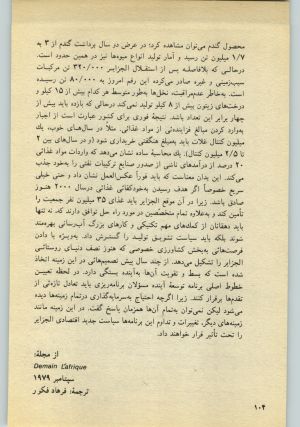 محصول گندم می‌توان مشاهده کرد؛ در عرض دو سال برداشت گندم از ۳ به
۱/۷ میلیون تن رسید و آمار تولید انواع میوه‌ها نیز در همین حدود است.
درحالی که بلافاصله پس از استقلال الجزایر ۳۲۰/۰۰۰ تن مرکبات
سیب‌زمینی و غیره صادر می‌کرده این رقم امروز به ۸۰/۰۰۰ تن رسیده
است. به‌خاطر عدم‌مراقبت، نخل‌ها به‌طور متوسط هر کدام بیش از ۱۵ کیلو و
درخت‌های زیتون بیش از ۸ کیلو تولید نمی‌کند درحالی که بازده باید بیش از
چهار برابر این تعداد باشد. نتیجهٔ فوری برای کشور عبارت است از اجبار
به‌وارد کردن مبالغ فزاینده‌ئی از مواد غذائی. مثلاً در سال‌های خوب، یك
میلیون کنتال غلات باید به‌مبلغ هنگفتی خریداری شود (و در سال‌های بین ۲
تا ۲/۵ میلیون کنتال). یك محاسبه ساده نشان می‌دهد که واردات مواد غذائی
۲۰ درصد از درآمدهای ناشی از صدور صنایع ترکیبات نفتی را به‌خود جذب
می‌کند. این بدان معناست که باید فوراً عکس‌العمل نشان داد و حتی خیلی
سریع خصوصاً اگر هدف رسیدن به‌خودکفائی غذائی درسال ۲۰۰۰ هنوز
صادق باشد. زیرا در آن موقع الجزایر باید غذای ۳۵ میلیون نفر جمعیت را
تأمین کند و به‌علاوه تمام متخصصین در مورد راه حل توافق دارند که نه تنها
باید دهقانان از کمك‌های مهم تکنیکی و کارهای بزرگ آب‌رسانی بهره‌مند
شوند بلکه باید سیاست تشویق تولید را گسترش داد. به‌ویژه با دادن
فرصت‌هائی به‌بخش کشاورزی خصوصی که هنوز نصف دنیای روستائی
الجزایر را تشکیل می‌دهد. از چند سال پیش تصمیم‌هائی در این زمینه اتخاذ
شده است که بسط و تقویت آن‌ها به‌آینده بستگی دارد. در لحظه تعیین
خطوط اصلی برنامه توسعهٔ آینده مسؤلان برنامه‌ریزی باید تعادل تازه‌ئی از
تقدم‌ها برقرار کنند. زیرا اگرچه احتیاج به‌سرمایه‌گذاری درتمام زمینه‌ها دیده
می‌شود لیکن نمی‌توان به‌تمام آن‌ها همزمان پاسخ گفت. در این زمینه مانند
زمینه‌های دیگر، تغییرات و تداوم این برنامه‌ها سیاست جدید اقتصادی الجزایر
را تحت تأثیر قرار خواهند داد.
از مجلهٔ:
Demain L'afrique
سپتامبر ۱۹۷۹
ترجمهٔ: فرهاد فکور
۱۰۴